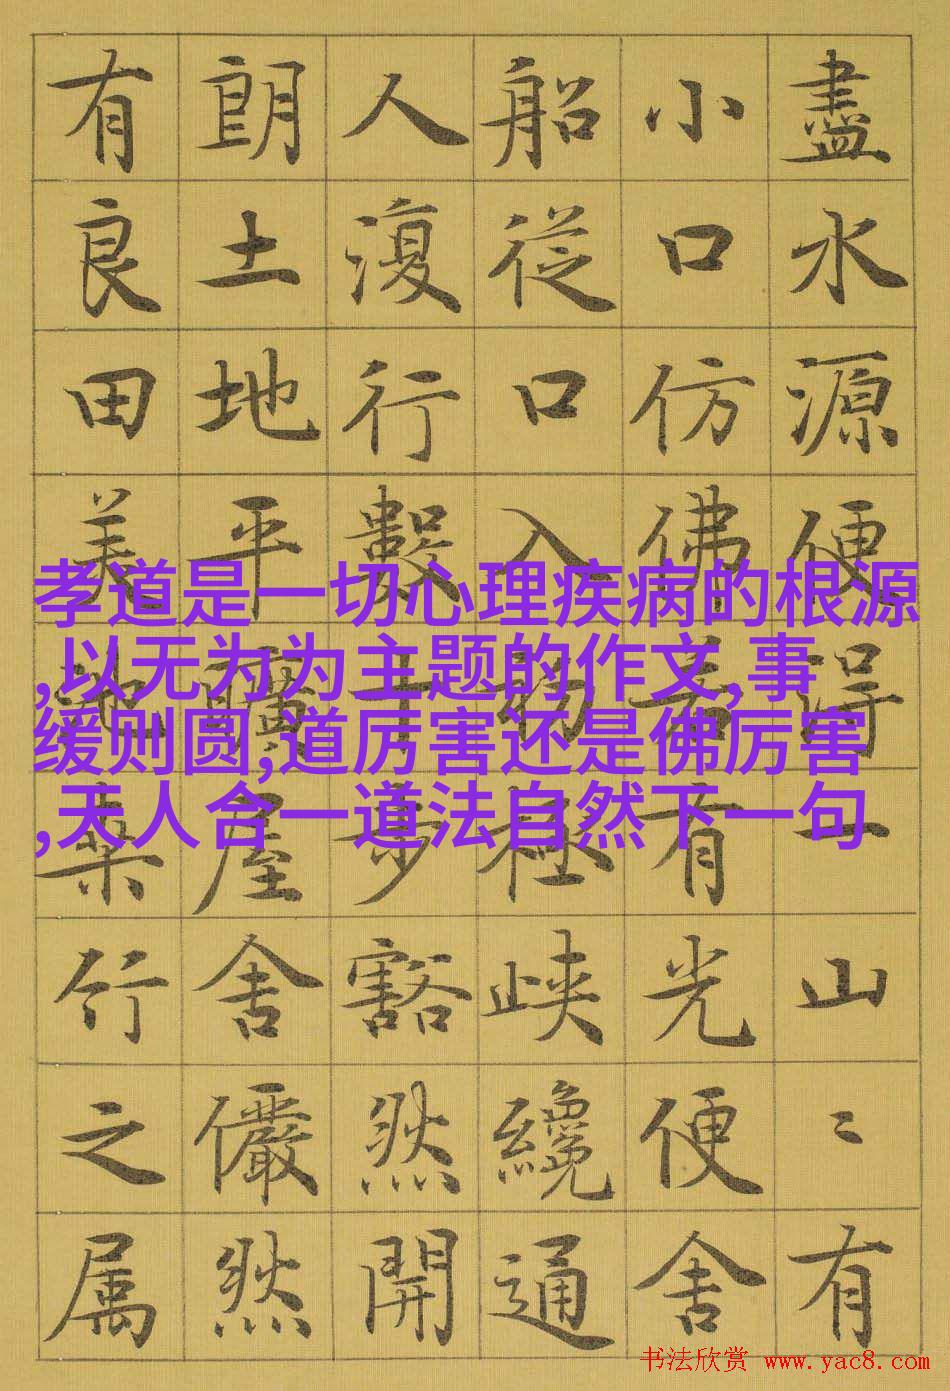 盡水源便得一山〻有
小口仿佛若有光便舍
船從口入初極峡纔通
人復行數十步豁然開
朗土地平曠屋舍儼然
有良田美池桒竹之属
孝道是一切心理疾病的根源
,以无为为主题的作文,事
缓则圆,道厉害还是佛厉害
,天人合一道法自然下一句
书法欣赏 www.yac8.com